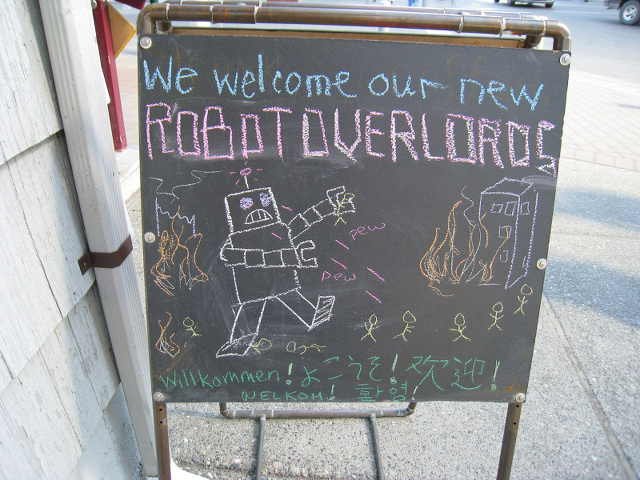 We welcome our new
ROBOT OVERLORDS
pew
pew
Willkommen! ようこそ! 欢迎!
WELKOM! 환영!